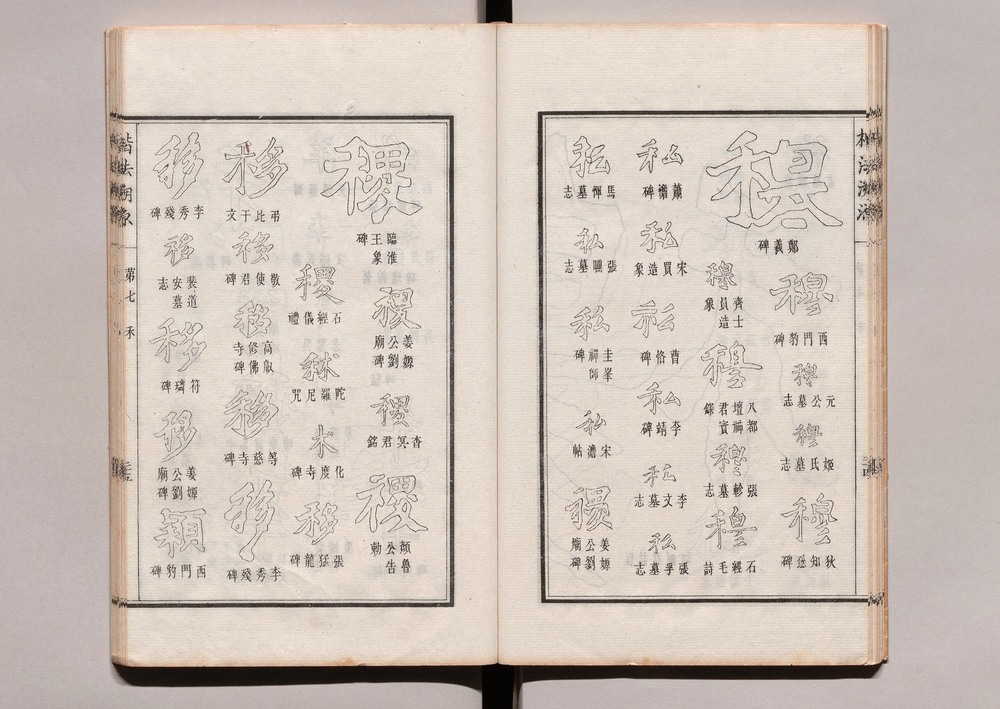 穆
鄭義碑
穆
西門豹碑
穆
元公墓志
穆
姬氏墓志
穆
狄知愻碑
穆
齊士員造象
穆
八都壇神君實錄
穆
張軫墓志
穆
石經毛詩
私
蕭憺碑
私
宋買造象
私
曹恪碑
私
李靖碑
私
李文墓志
私
張孚墓志
私
馬惲墓志
私
張曛墓志
私
圭峯禪師碑
私
宋儋帖
稷
姜嫄公劉廟碑
楷法溯源
第七
禾
稷
臨淮王象碑
稷
姜嫄公劉廟碑
稷
杳冥君銘
稷
顏魯公告勅
稷
石經儀禮
秫
陀羅尼咒
术
化度寺碑
移
張猛龍碑
移
弔比干文
移
敬使君碑
移
高叡修佛寺碑
移
等慈寺碑
移
李秀殘碑
移
李秀殘碑
移
裴道安墓志
移
符璘碑
移
姜嫄公劉廟碑
穎
西門豹碑